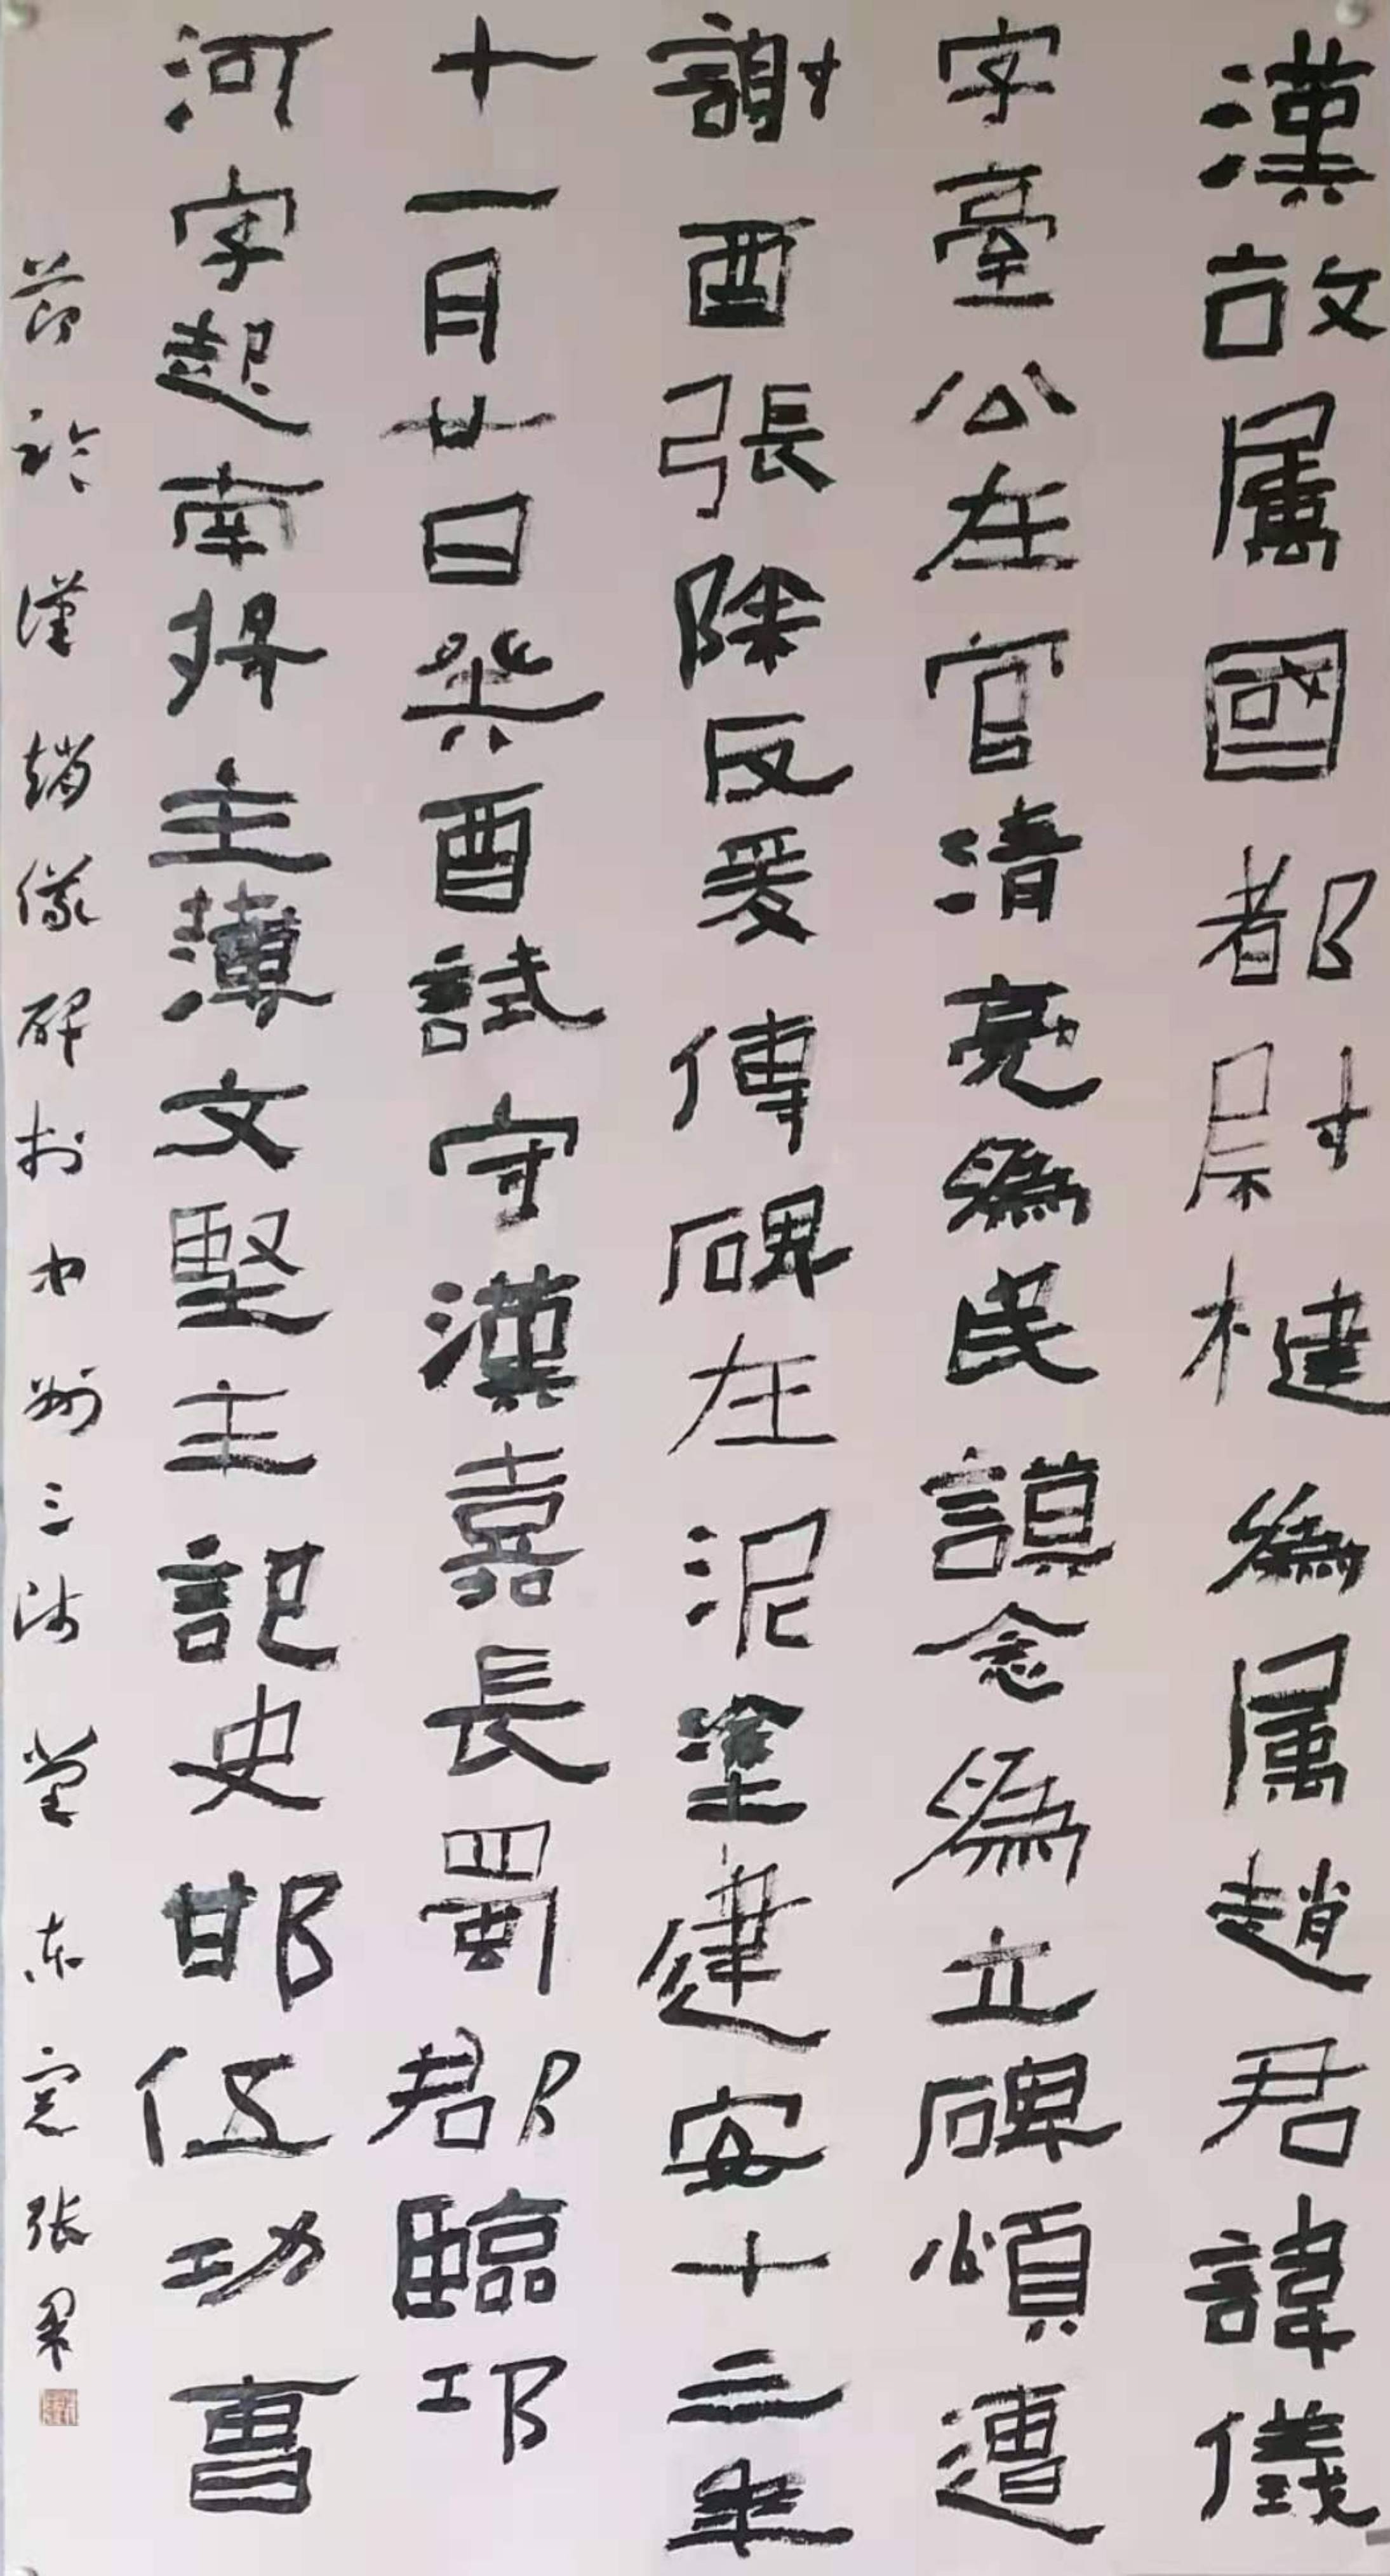 漢故属國都尉楗為属趙君諱儀
字臺公在官清亮為民謨念為立碑頌遭
謝酉張除反爰傳碑在泥塗建安十三年
十一月廿日癸酉試守漢嘉長蜀郡臨邛
河字起南將主薄文堅主記史邯伍功曹
節於漢趙儀碑於中州三涉堂东完张果